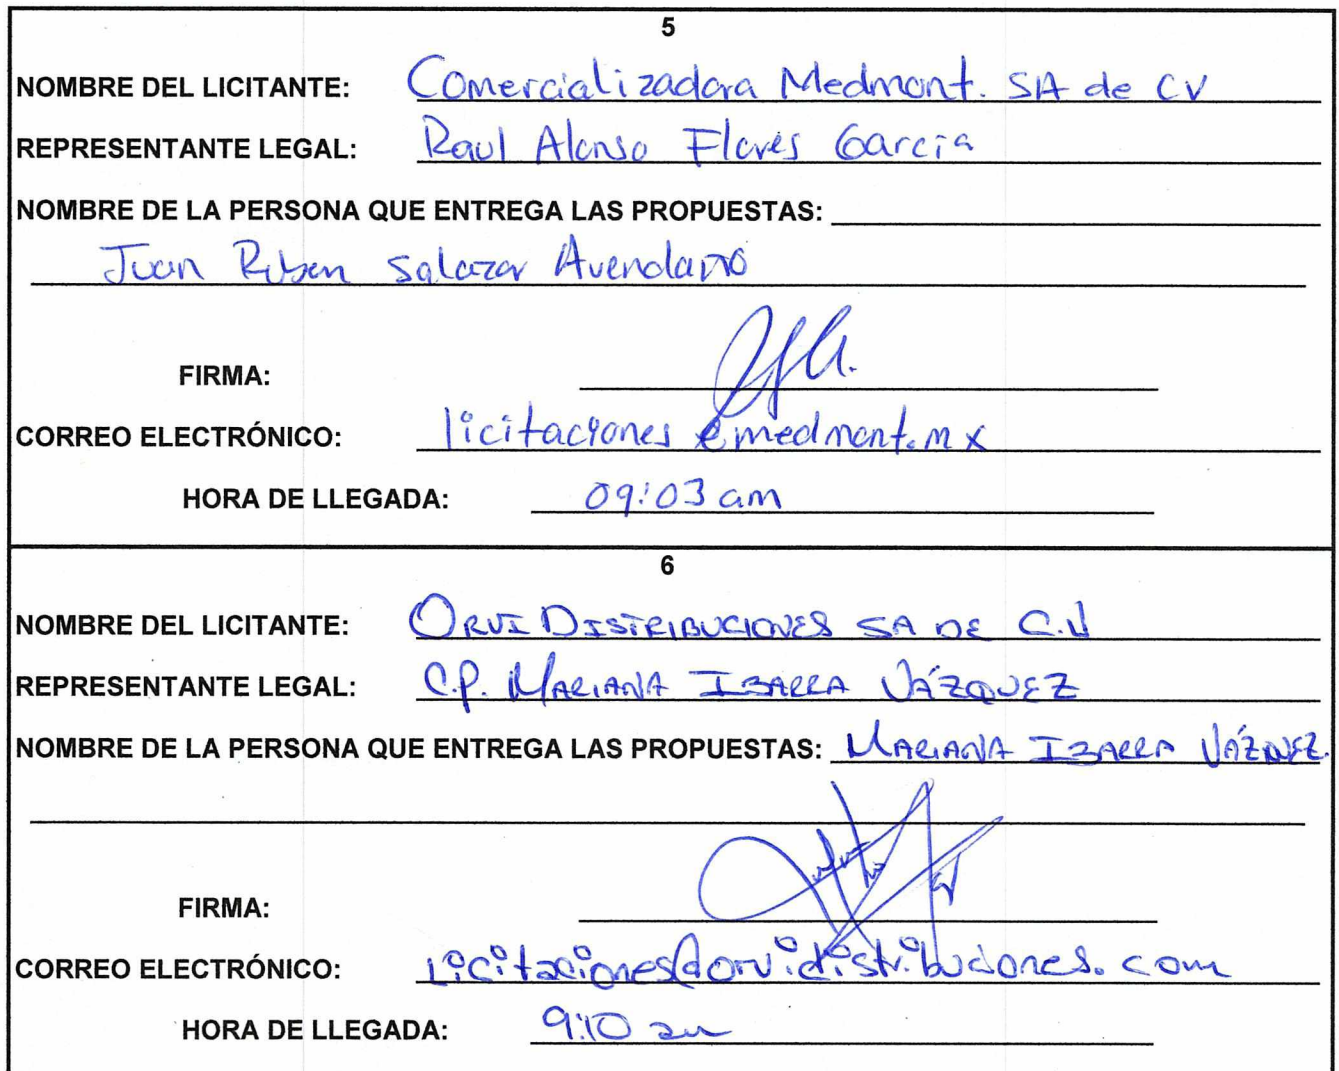 5
NOMBRE DEL LICITANTE: Comercializadora Medmont. SA de CV
REPRESENTANTE LEGAL: Raul Alonso Flores Garcia
NOMBRE DE LA PERSONA QUE ENTREGA LAS PROPUESTAS:
Juan Ruben Salazar Avendaño
FIRMA:
CORREO ELECTRÓNICO: licitaciones@medmont.mx
HORA DE LLEGADA: 09:03 am
6
NOMBRE DEL LICITANTE: ORVI DISTRIBUCIONES SA DE C.V
REPRESENTANTE LEGAL: C.P. MARIANA IBARRA VÁZQUEZ
NOMBRE DE LA PERSONA QUE ENTREGA LAS PROPUESTAS: MARIANA IBARRA VÁZQUEZ.
FIRMA:
CORREO ELECTRÓNICO: Licitaciones@orvidistribuciones.com
HORA DE LLEGADA: 9:10 am